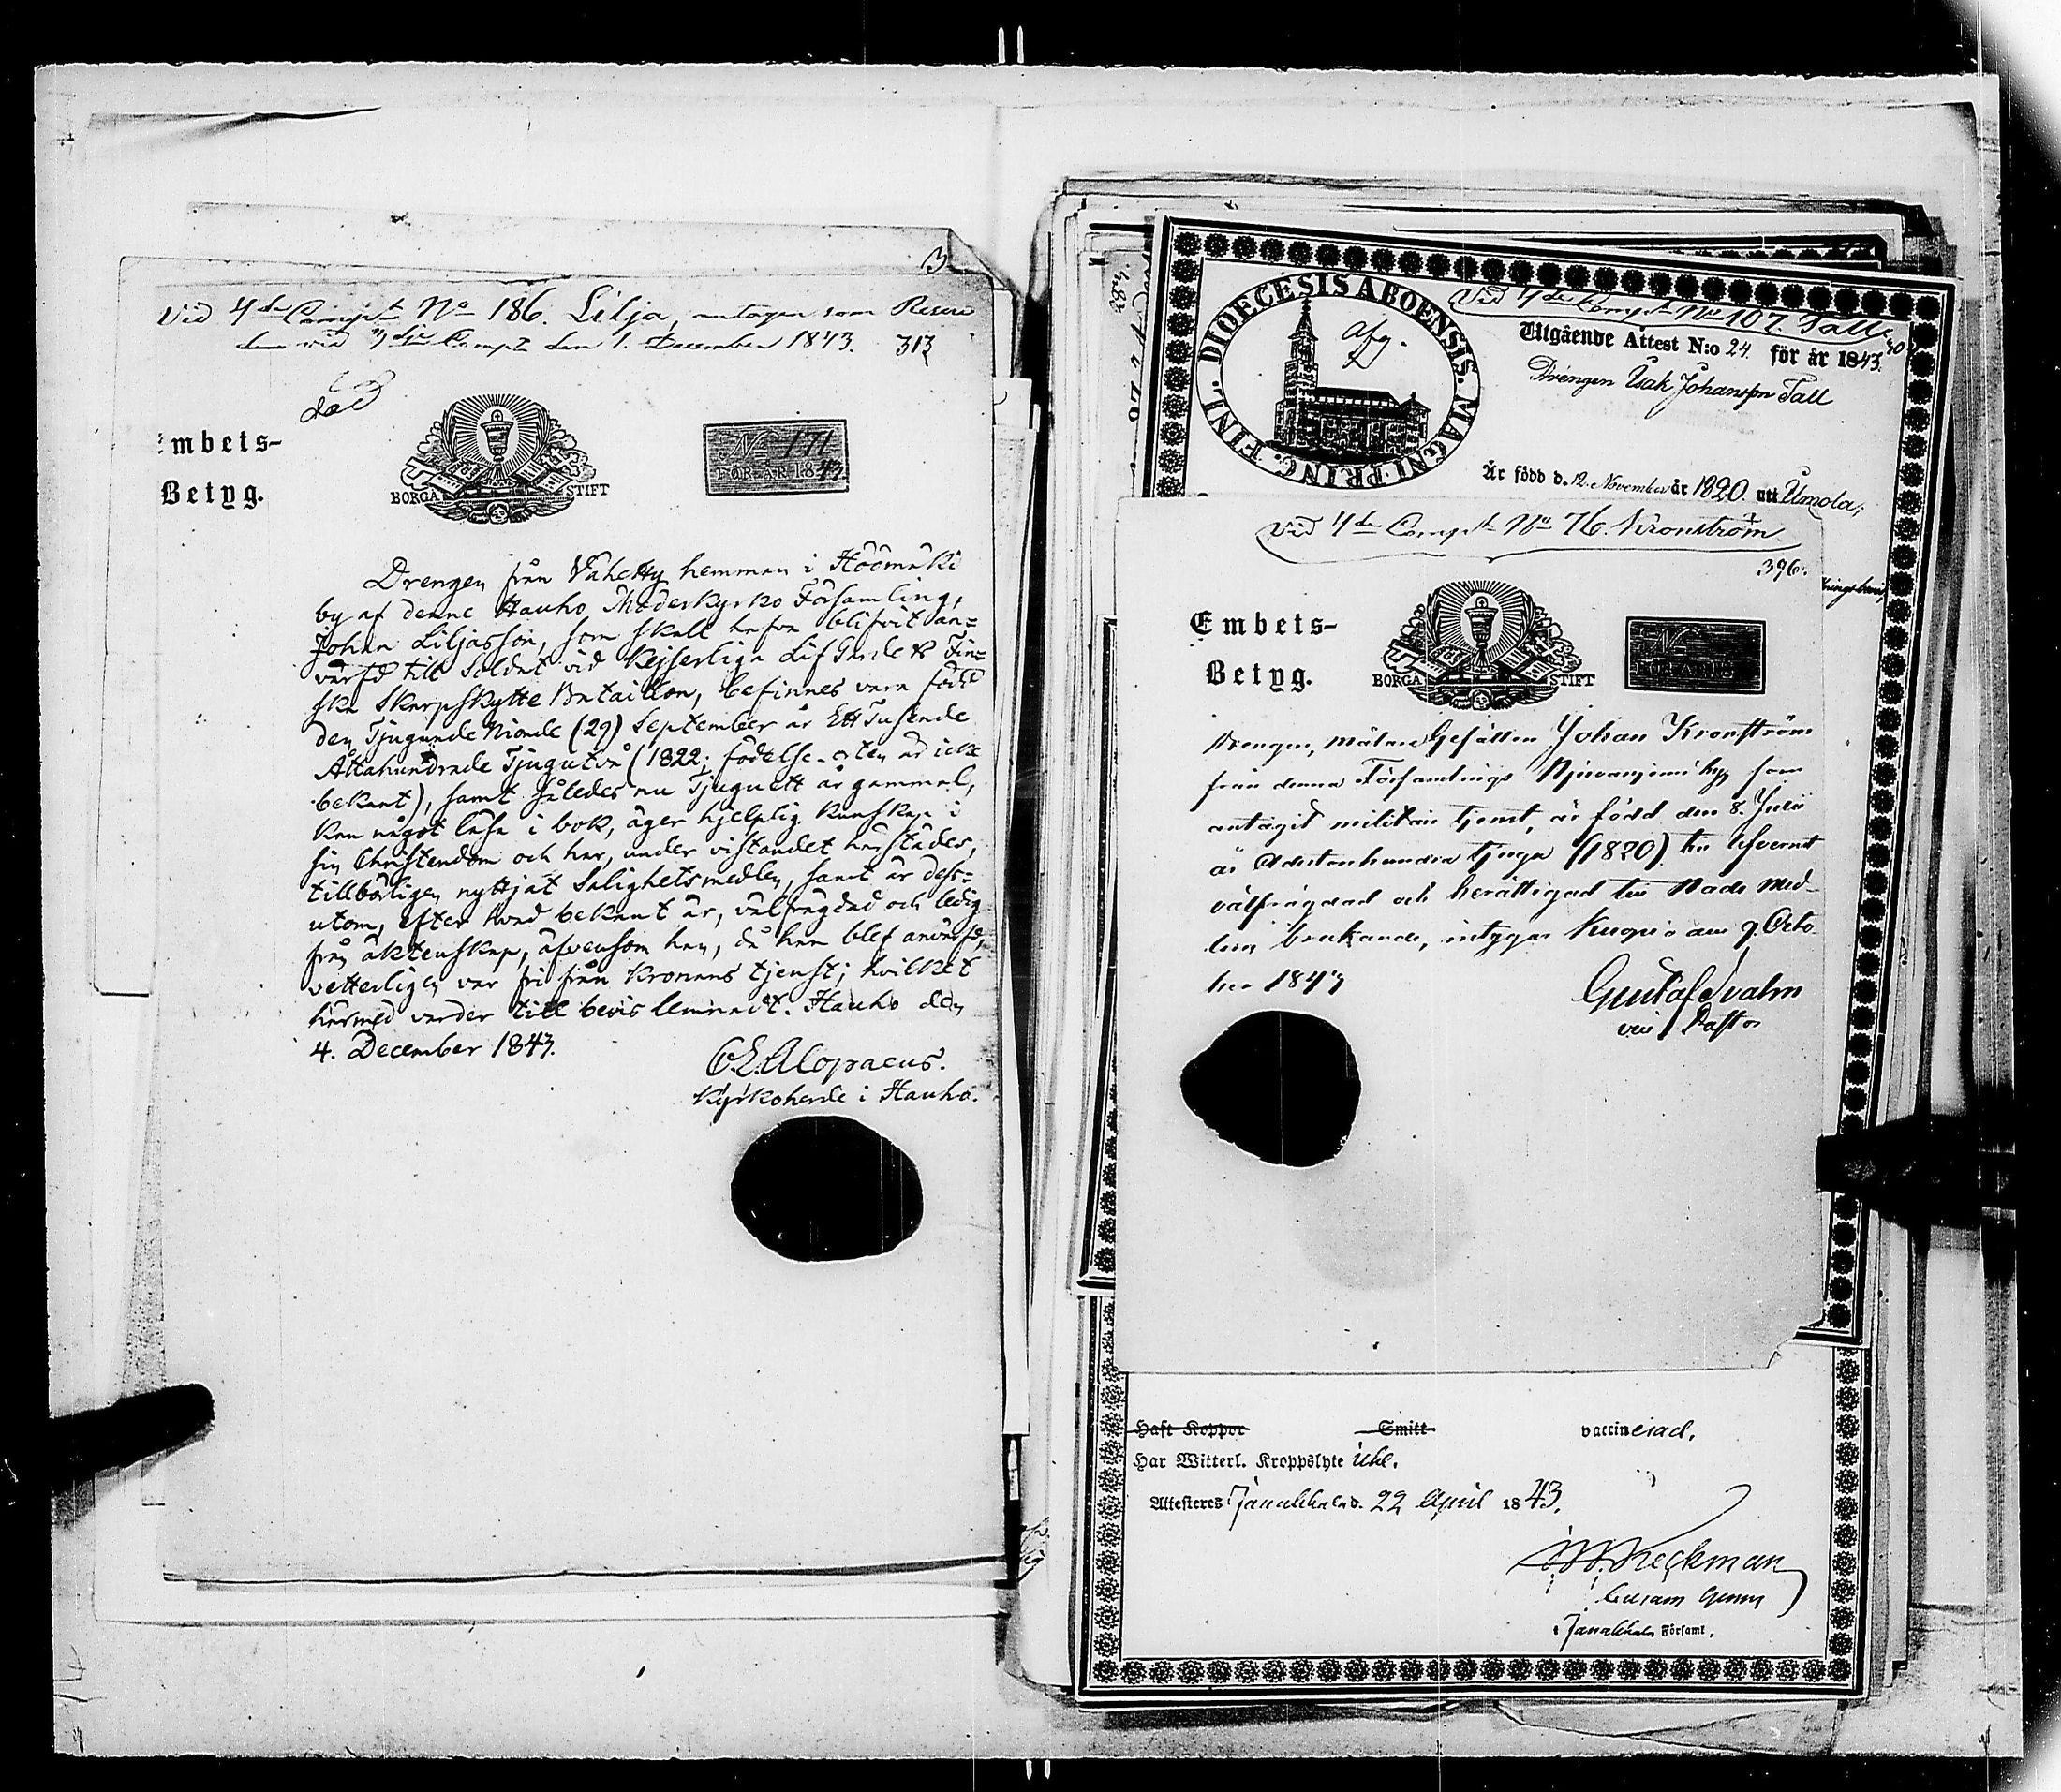 3
Vid 4de Comp. No 186. Lilja, antagen som Reserv
den 1. December 1843. 313
död
Embets-
Betyg.
BORGÅ STIFT
No 171
FÖR ÅR 1843.
Drengen från Vahetty hemman i
by af denne Hauho Moderkyrko Församling,
Johan Liljasson, som skall hafva blifvit an=
värfd till Soldat vid Kejserliga Lif Gardets Fin=
ska Skarpskytte Bataillon, befinnes vara född
den Tjugunde Nionde (29) September år Ett Tusende
Åttahundrade Tjugutvå (1822; födelse-orten är icke
bekant), samt således nu Tjuguett år gammal,
kan något läsa i bok, äger hjelplig kunskap i
sin Christendom och har, under vistandet härstädes,
tillbörligen nyttjat Salighetsmedlen, samt är dess=
utom, efter hvad bekant är, välfrägdad och ledig
från äktenskap, äfvensom han, då han blef anvärfd,
vetterligen var fri från Kronans tjenst; hvilket
härmed varder till bevis lemnadt. Hauho den
4. December 1843.
C. E. Alopaeus.
Kyrkoherde i Hauho.
DIOECESIS ABOENSIS. MAGNI PRINC. FINL.
Vid 4de Comp. No 107. Tall
Utgående Attest N:o 24. för år 1843.
Drengen Isak Johansson Tall
Är född d. 12 November år 1820. uti Urmola;
Vid 4de Comp. No 76. Kronström
396.
Embets-
Betyg.
BORGÅ STIFT
No
FÖR ÅR 18
Drengen, Målare Gesällen Johan Kronström
från denna Församlings by som
antagit militair tjenst, är född den 8. Julii
år Adertonhundra tjugu (1820), till
välfrägdad och berättigad till Nade Med-
lens brukande, intygar Kuopio den 9. Octo-
ber 1843
Gustaf Svahn
vice Pastor
Haft Koppor Smitt vaccinerad.
Har Witterl. Kroppslyte icke.
Attesteras Janakkala d. 22 April 1843.
Heckman
i Janakkala Församl.